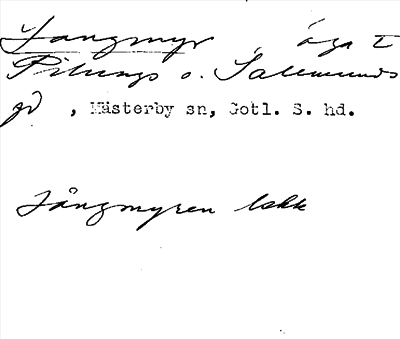 Langmyr, äga t
Pilungs o. Salmunds
gd, Mästerby sn, Gotl. S. hd.
Långmyren lokk